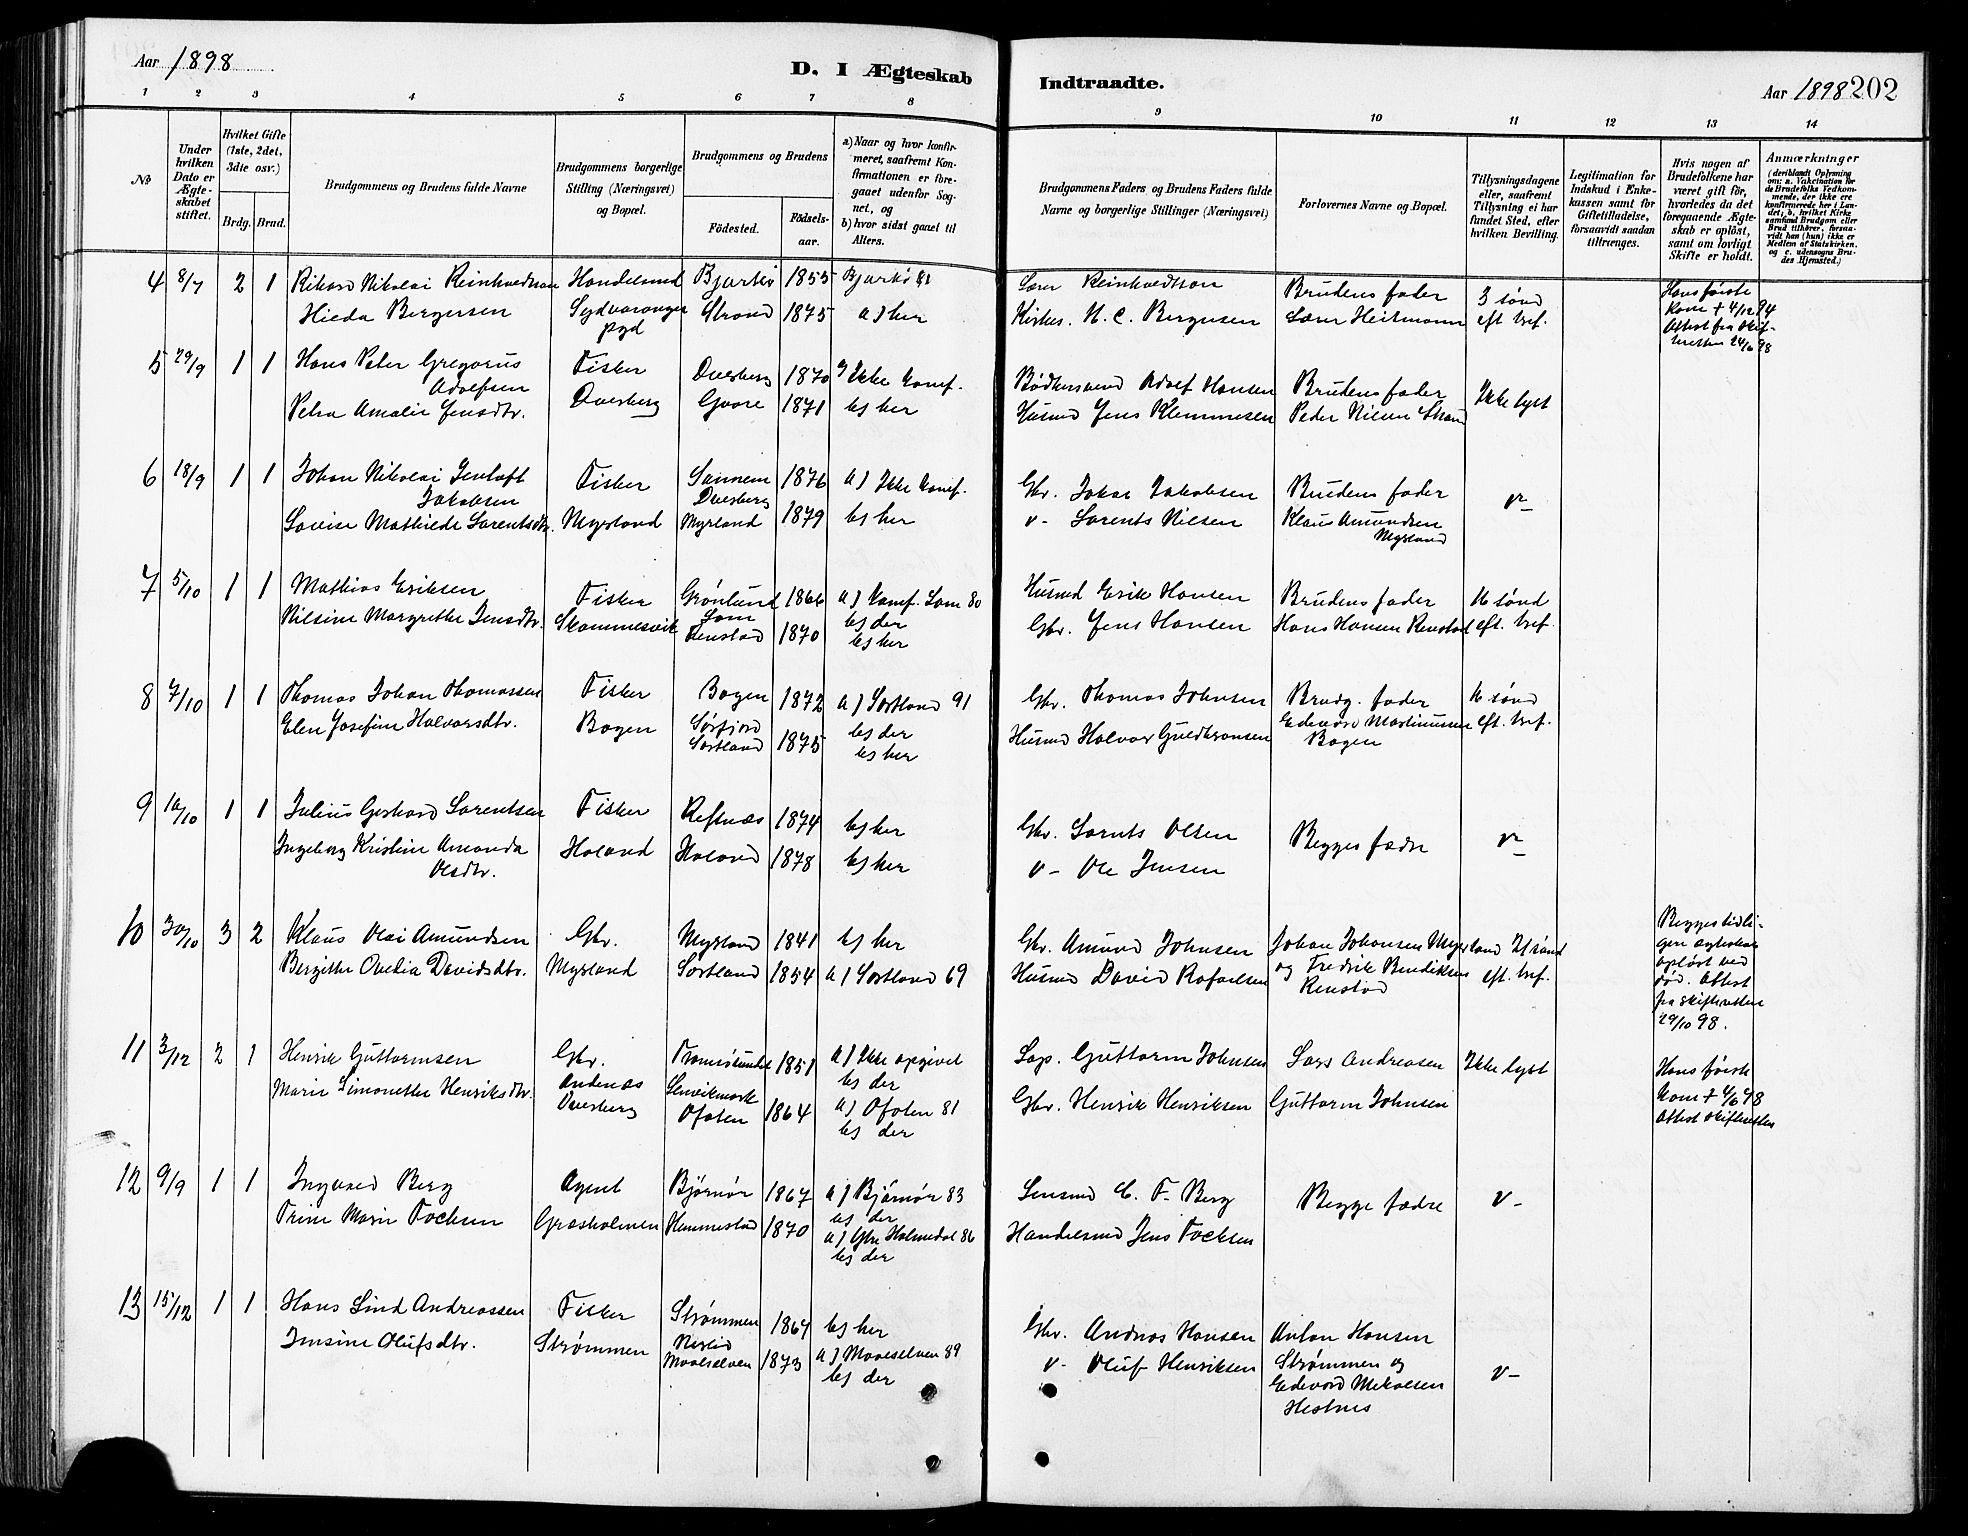 Aar 1898
D. I Ægteskab
Indtraadte.
Aar 1898 202
1 2 3 4 5 6 7 8 9 10 11 12 13 14
№
Under hvilken Dato er Ægteskabet stiftet.
Hvilket Gifte (1ste, 2det, 3die osv.)
Brdg. Brud.
Brudgommens og Brudens fulde Navne
Brudgommens borgerlige Stilling (Næringsvei) og Bopæl.
Brudgommens og Brudens
Fødested.
Fødselsaar.
a) Naar og hvor konfirmeret, saafremt Konfirmationen er foregaaet udenfor Sognet, og
b) hvor sidst gaaet til Alters.
Brudgommens Faders og Brudens Faders fulde Navne og borgerlige Stillinger (Næringsvei)
Forlovernes Navne og Bopæl.
Tillysningsdagene eller, saafremt Tillysning ei har fundet Sted, efter hvilken Bevilling.
Legitimation for Indskud i Enkekassen samt for Giftetilladelse, forsaavidt saadan tiltrænges.
Hvis nogen af Brudefolkene har været gift før, hvorledes da det foregaaende Ægteskab er opløst, samt om lovligt Skifte er holdt.
Anmærkninger (deriblandt Oplysning om: a. Vakcination for de Brudefolks Vedkommende, der ikke ere konfirmerede her i Landet; b. hvilket Kirkesamfund Brudgom eller Brud tilhører, forsaavidt han (hun) ikke er Medlem af Statskirken, og c. udensogns Brudes Hjemsted.)
4 8/7 2 1 Rikard Nikolai Reinhardtson Handelsmd Bjarkö 1855 Bjarkö
Hilda Bergersen Sydvaranger pgd Strand 1875 a) her
Lærer Reinhardtson Brudens fader 3 sönd
Kirkes. N. C. Bergersen Lærer Heitmann eft tref.
Hans første
Kone + 4/12 94
Attest fra skif-
teretten 24/6 98
5 29/9 1 1 Hans Peter Gregorius Fisker Dverberg 1870 Ikke konf.
Adolfsen
Petra Amalie Jensdtr. Dverberg Gaare 1871 b) her
Bödkersvend Adolf Hansen Brudens fader Ikke lyst
Husmd Jens Klemmesen Peder Nilsen Strand
6 18/9 1 1 Johan Nikolai Jentoft Fisker Sannem 1876 a) Ikke konf.
Jakobsen Dverberg
Lovise Mathilde Lorentsdtr. Myrland Myrland 1879 b) her
Gbr. Johan Jakobsen Brudens fader v-
v- Lorents Nilsen Klaus Amundsen
Myrland
7 5/10 1 1 Mathias Eriksen Fisker Grønlund 1866 a) konf. Lom 80
Lom b) der
Nilsine Margrethe Jensdtr. Skommesvik Renstad 1870 b) her
Husmd Erik Hansen Brudens fader 16 sönd
Gbr. Jens Hansen Hans Hansen Renstad eft. tref.
8 7/10 1 1 Thomas Johan Thomassen Fisker Bogen 1872 a) Sortland 91
Elen Josefine Halvorsdtr. Bogen Sørfjord b) der
Sortland 1875 b) her
Gbr. Thomas Johnsen Brudg. fader 16 sönd
Husmd Halvor Guldbransen Edevard Martinussen eft. tref.
Bogen
9 10/10 1 1 Julius Gerhard Lorentsen Fisker Refsnæs 1874 b) her
Ingeborg Kristine Amanda Haland Haland 1878 b) her
Olsdtr.
Gbr. Lornts Olsen Begges fædre v-
v- Ole Jensen
10 30/10 3 2 Klaus Olai Amundsen Gbr. Myrland 1841 b) her
Bergitte Ovelia Davidsdtr. Myrland Sortland 1854 a) Sortland 69
Gbr. Amund Johnsen Johan Johansen Myrland 21 sönd
Husmd David Rafaelsen og Fredrik Bendiksen eft. tref.
Renstad
Begges tidli-
gere ægteskab
opløst ved
død. Attest
fra skifteretten
29/10 98.
11 3/12 2 1 Henrik Guttormsen Gbr. Tromsösundet 1851 a) Ikke opgivet
Andenæs Lenvikmark b) der
Marie Simonette Henriksdtr. Dverberg Ofoten 1864 a) Ofoten 81
b) der
Guttorm Johnsen Lars Andreasen Ikke lyst
Gbr. Henrik Henriksen Guttorm Johnsen
Hans første
kone + 4/6 98
Attest skifteretten
12 9/9 1 1 Ingvard Berg Agent Bjørnør 1867 a) Bjørnør 83
b) der
Trine Marie Fochsen Græsholmen Hemmestad 1870 a) Holmedal 86
b) der
Lensmd C. F. Berg Begge fædre v-
Handelsmd Jens Fochsen
13 15/12 1 1 Hans Lind Andreassen Fisker Strømmen 1867 b) her
Jensine Olufsdtr. Strømmen
Maalselven 1873 a) Maalselven 89
b) der
Gbr. Andreas Hansen Anton Hansen
v- Oluf Henriksen Strømmen og v-
Edevard Mikalsen
Hestnes